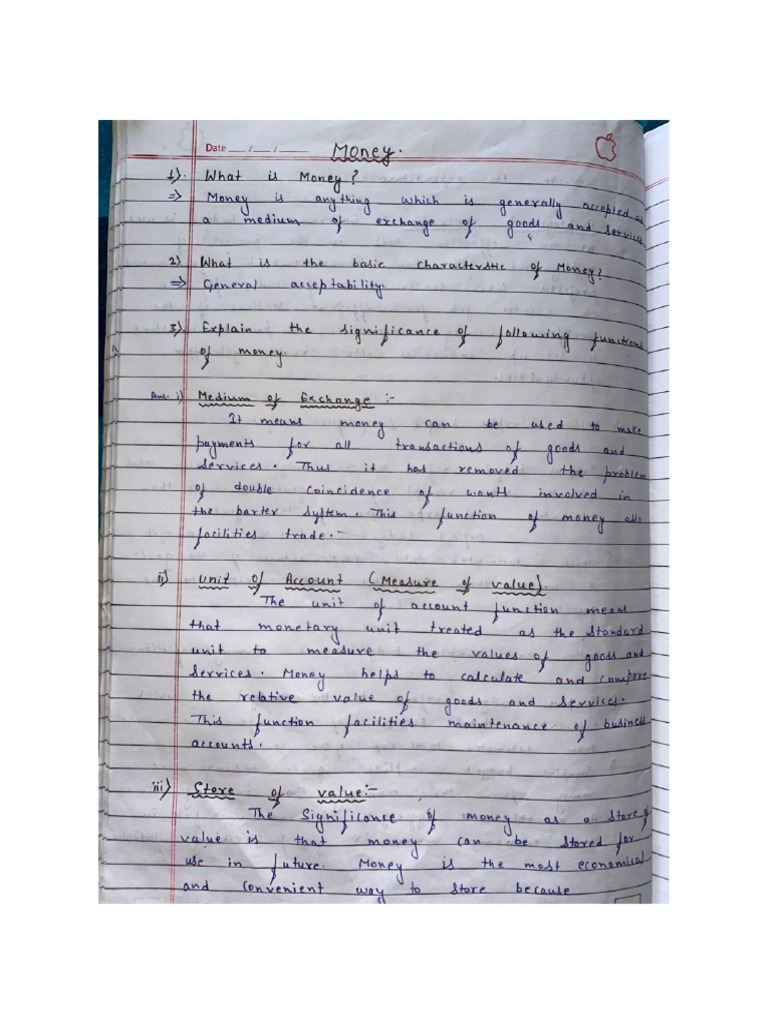 Date ___/___/____
Money.
1). What is Money?
⇒ Money is anything which is generally accepted as
a medium of exchange of goods and services
2) What is the basic characterstic of Money?
⇒ General acceptability.
3). Explain the significance of following functions
of money.
Ans. i) Medium of Exchange :-
It means money can be used to make
payments for all transactions of goods and
services. Thus it has removed the problem
of double coincidence of wants involved in
the barter system. This function of money also
facilities trade.-
ii) Unit of Account (Measure of value).
The unit of account function means
that monetary unit treated as the standard
unit to measure the values of goods and
services. Money helps to calculate and compare
the relative value of goods and services.
This function facilities maintenance of business
accounts.
iii) Store of value:-
The Significance of money as a store of
value is that money can be stored for
use in future. Money is the most economical
and convenient way to store because